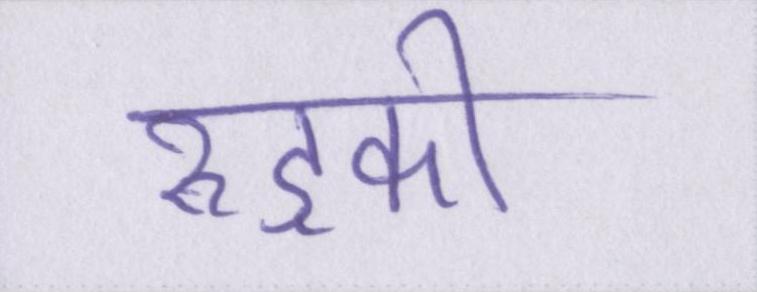 रुड़की